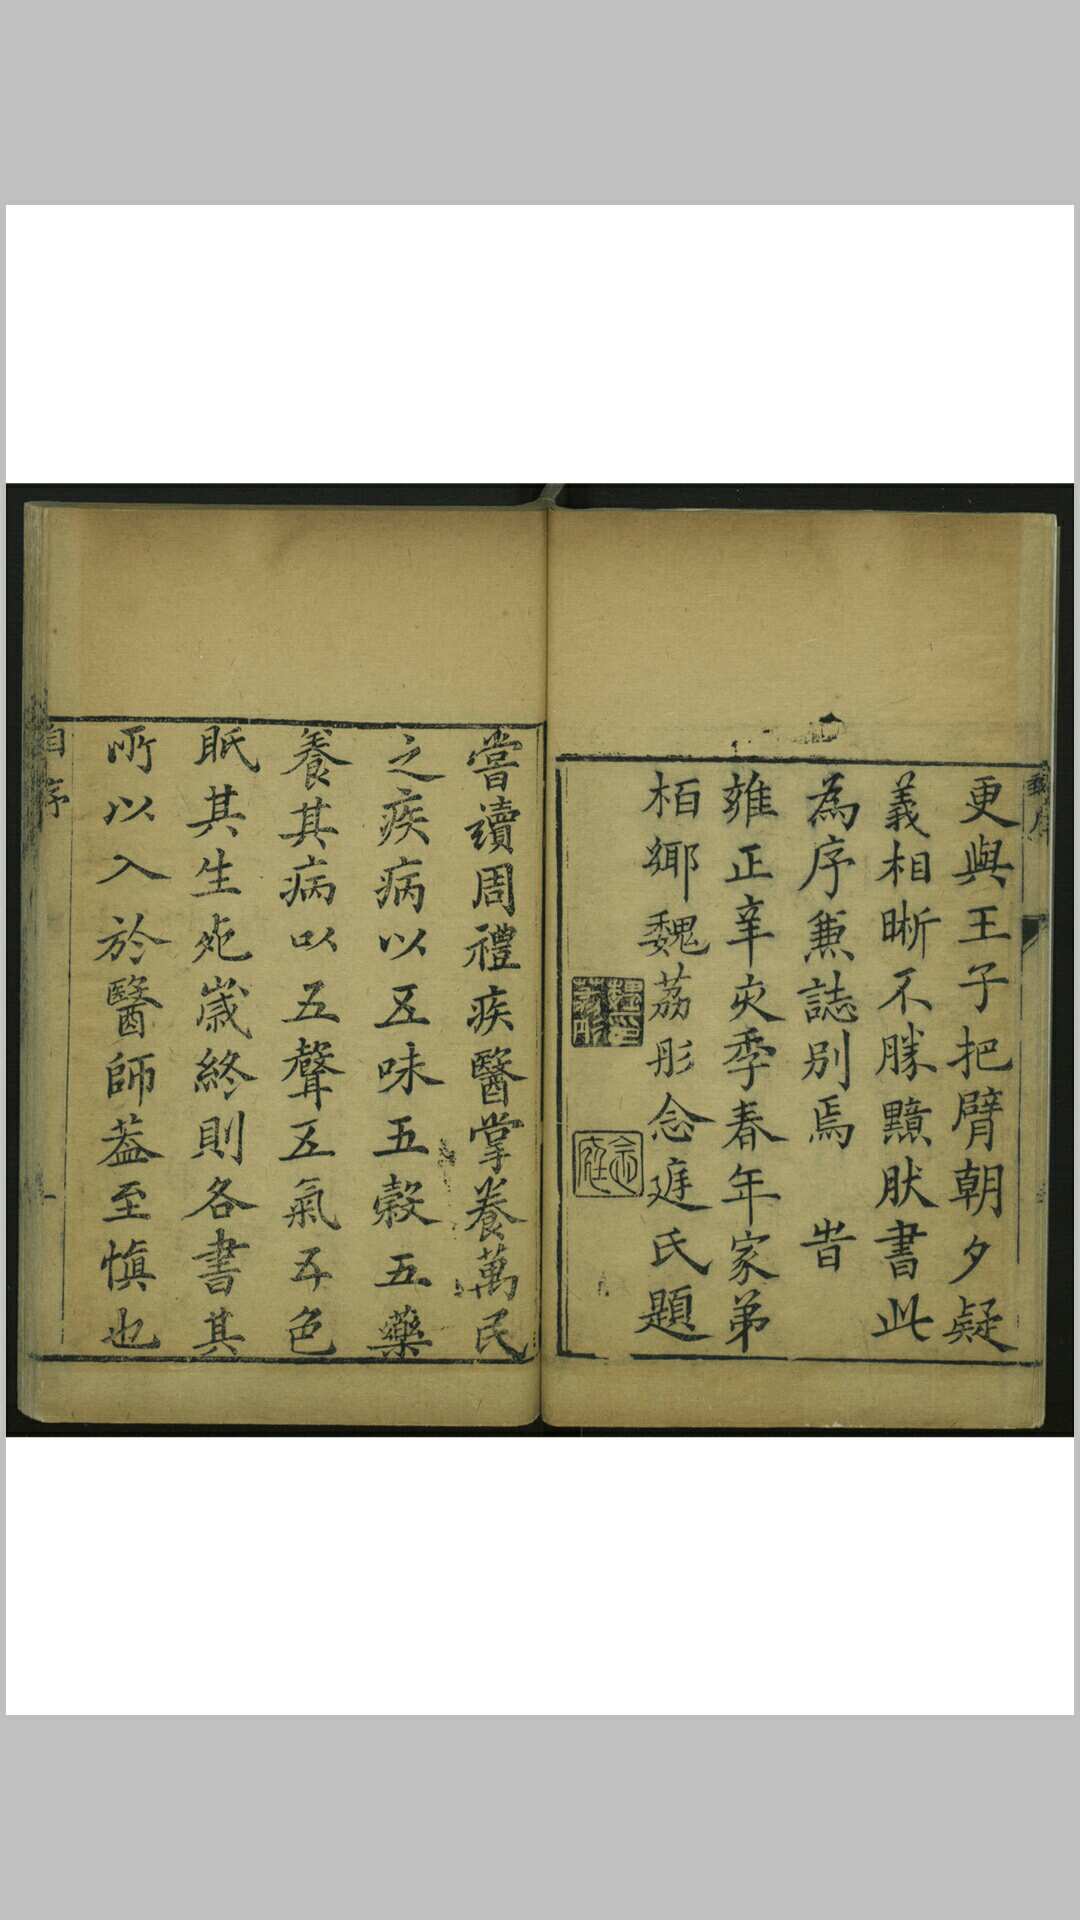 更與王子把臂朝夕疑
義相晰不勝黯肰書此
為序兼誌别焉　旹
雍正辛亥季春年家弟
栢鄉魏荔彤念庭氏題
念庭
嘗讀周禮疾醫掌養萬民
之疾病以五味五穀五藥
養其病以五聲五氣五色
眡其生死歲終則各書其
所以入於醫師葢至慎也
自序